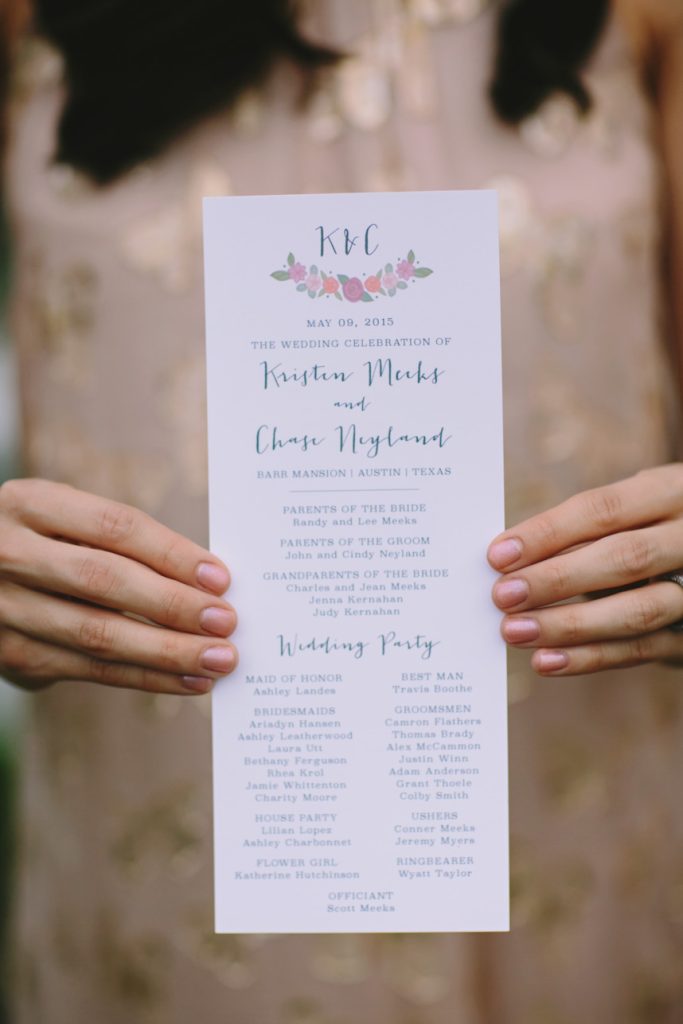 K&C
MAY 09, 2015
THE WEDDING CELEBRATION OF
Kristen Meeks
and
Chase Neyland
BARR MANSION | AUSTIN | TEXAS
PARENTS OF THE BRIDE
Randy and Lee Meeks
PARENTS OF THE GROOM
John and Cindy Neyland
GRANDPARENTS OF THE BRIDE
Charles and Jean Meeks
Jenna Kernahan
Judy Kernahan
Wedding Party
MAID OF HONOR
Ashley Landes
BRIDESMAIDS
Ariadyn Hansen
Ashley Leatherwood
Laura Utt
Bethany Ferguson
Rhea Krol
Jamie Whittenton
Charity Moore
HOUSE PARTY
Lilian Lopez
Ashley Charbonnet
FLOWER GIRL
Katherine Hutchinson
BEST MAN
Travis Boothe
GROOMSMEN
Camron Flathers
Thomas Brady
Alex McCammon
Justin Winn
Adam Anderson
Grant Thoele
Colby Smith
USHERS
Conner Meeks
Jeremy Myers
RINGBEARER
Wyatt Taylor
OFFICIANT
Scott Meeks